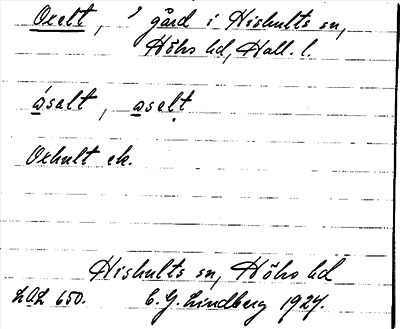 Oxelt, gård i Hishults sn,
Höks hd, Hall. l.
åsalt, asalt
Oxhult ek.
Hishults sn, Höks hd
LAL 650. C. G. Lindberg 1927.